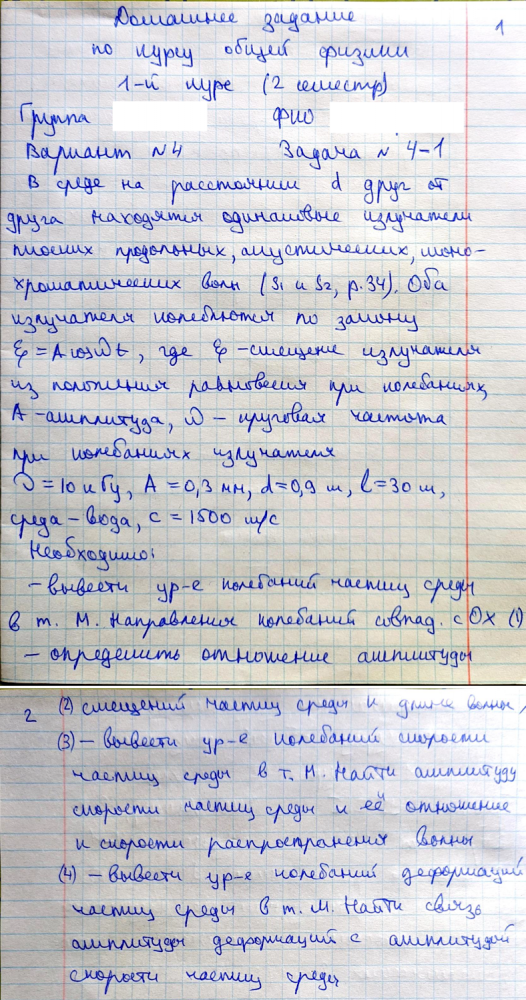 Домашнее задание
1
по курсу общей физики
1-й курс (2 семестр)
Группа ФИО
Вариант №4 Задача № 4-1
В среде на расстоянии d друг от
друга находятся одинаковые излучатели
плоских продольных, акустических, моно-
хроматических волн (S1 и S2, р.34). Оба
излучателя колеблются по закону
ξ = A cos ωt, где ξ - смещение излучателя
из положения равновесия при колебаниях,
А - амплитуда, ω - круговая частота
при колебаниях излучателя
ν = 10 кГц, A = 0,3 мм, d = 0,9 м, l = 30 м,
среда - вода, c = 1500 м/с
Необходимо:
- вывести ур-е колебаний частиц среды
в т. М. Направления колебаний совпад. с OX (1)
- определить отношение амплитуды
2
(2) смещений частиц среды к длине волны,
(3) - вывести ур-е колебаний скорости
частиц среды в т. М. Найти амплитуду
скорости частиц среды и её отношение
к скорости распространения волны
(4) - вывести ур-е колебаний деформаций
частиц среды в т. М. Найти связь
амплитуды деформаций с амплитудой
скорости частиц среды